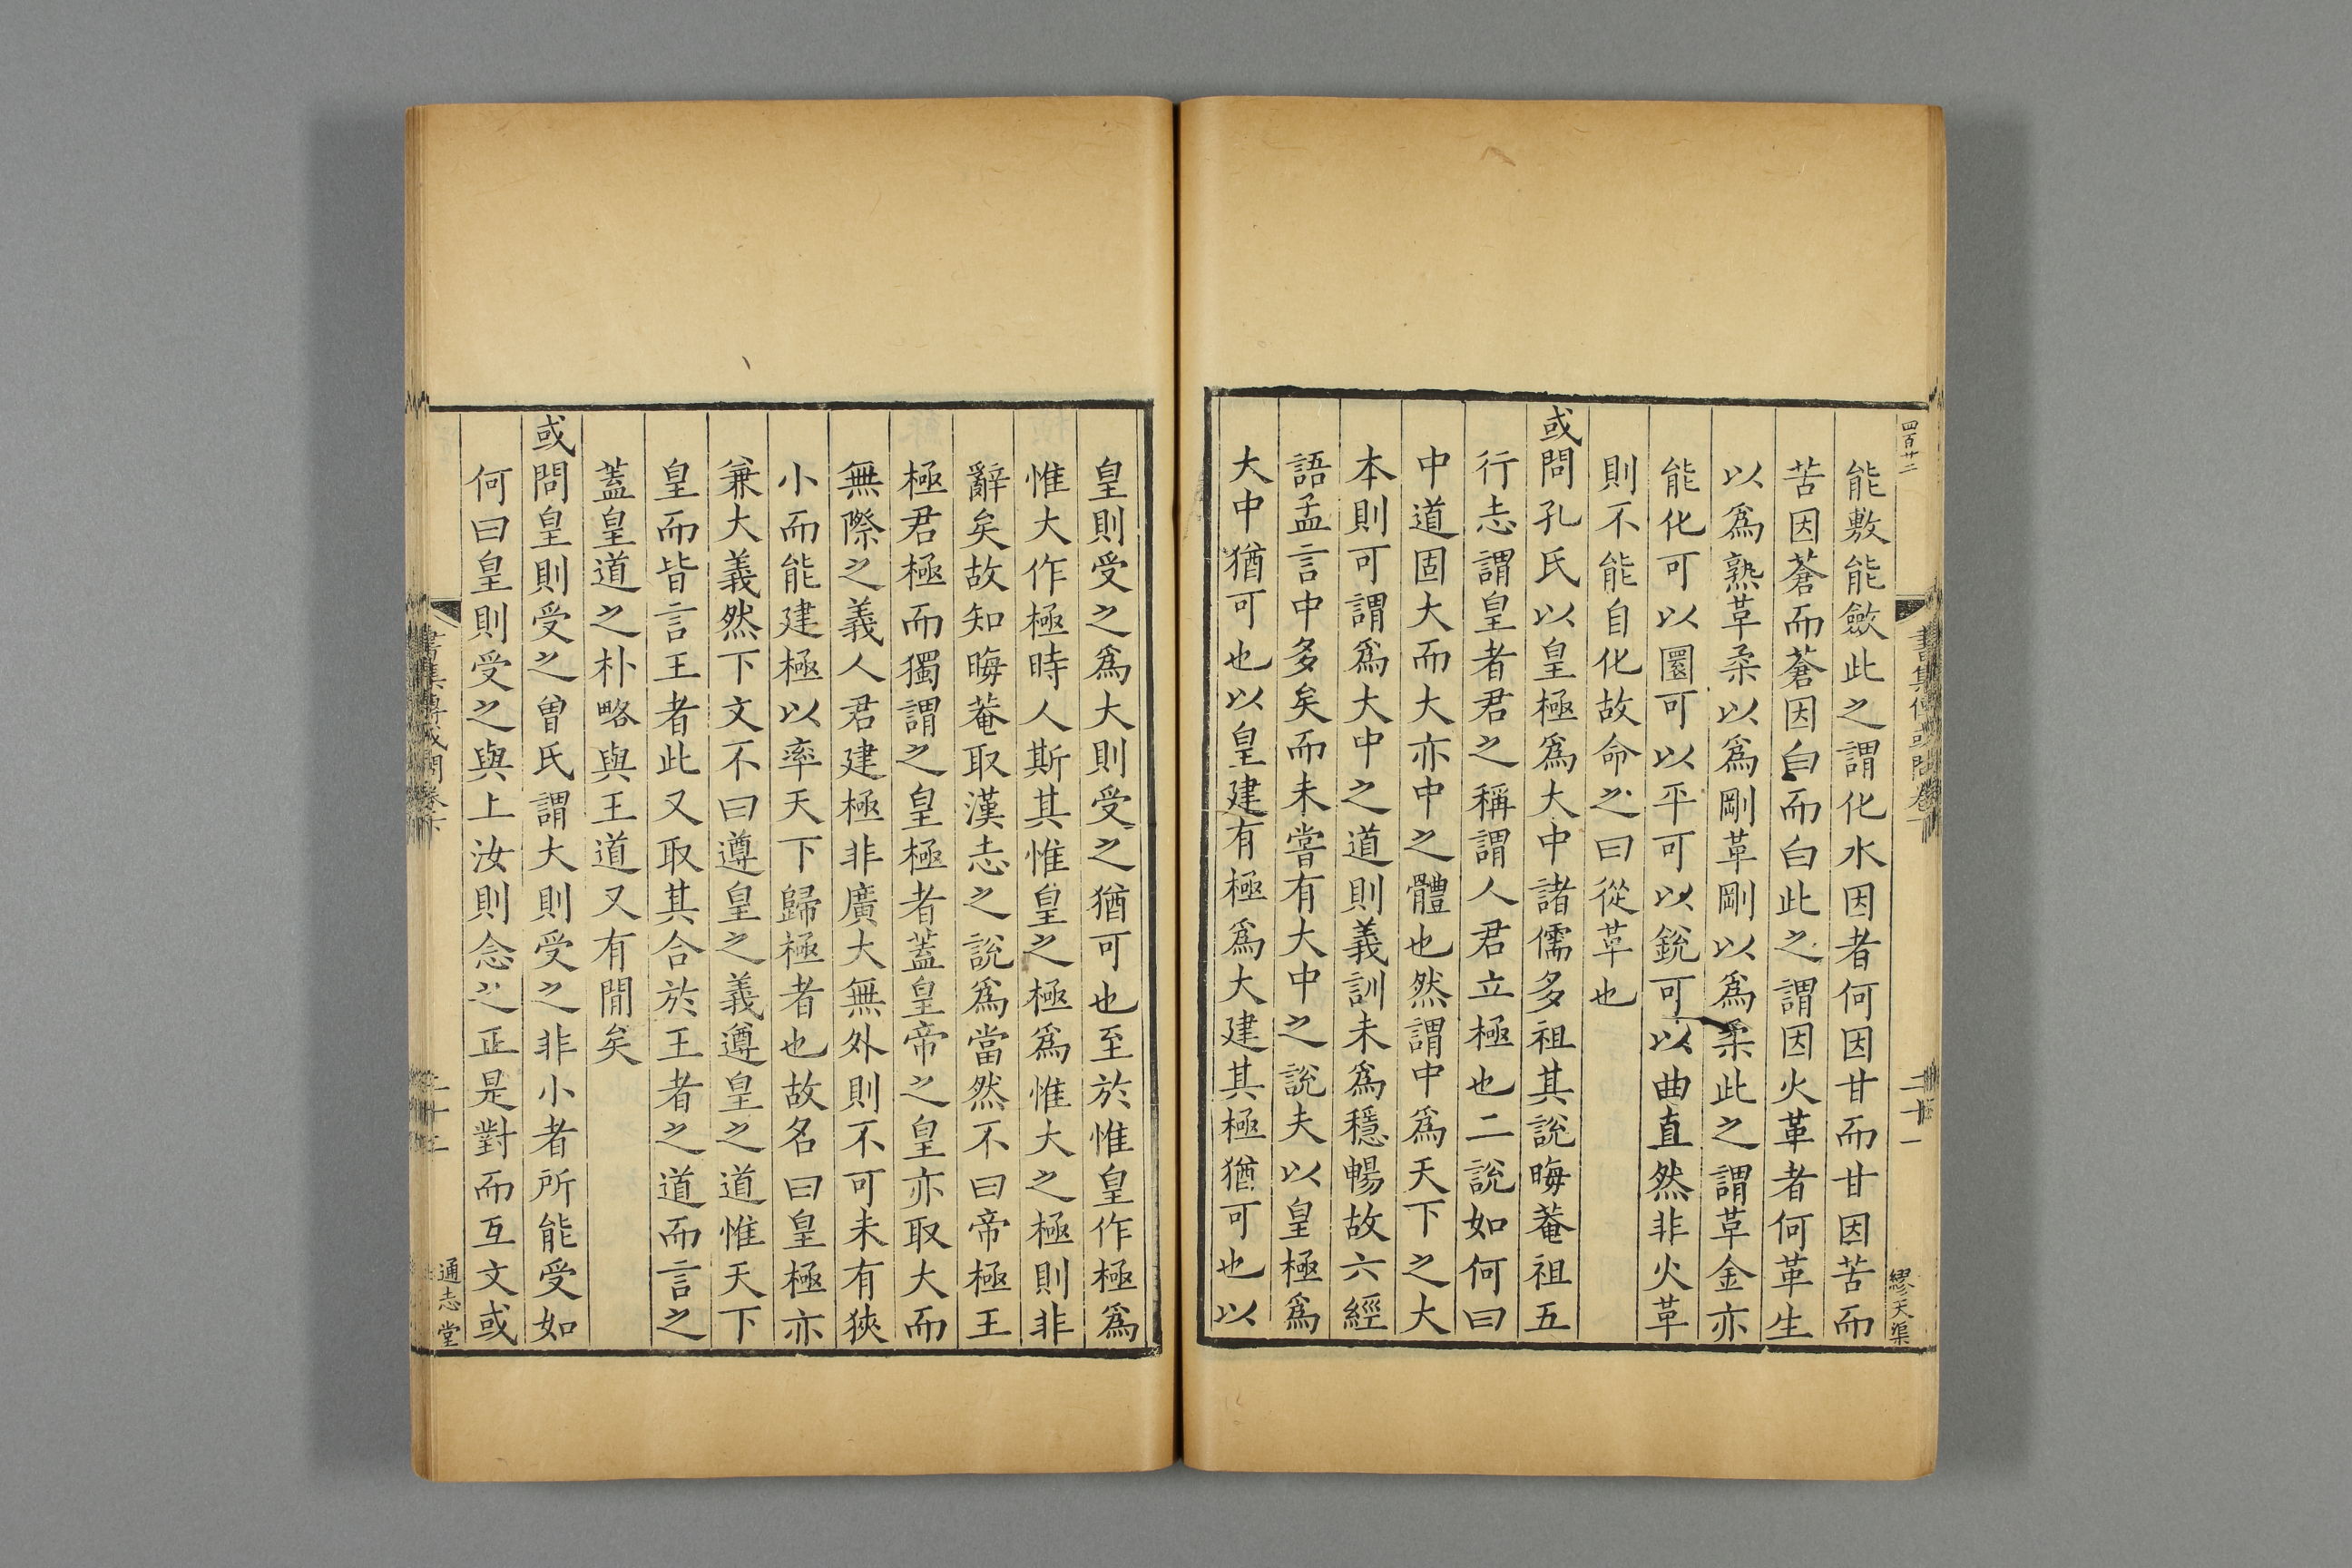 四百廿二
能敷能斂此之謂化水因者何因甘而甘因苦而
苦因蒼而蒼因白而白此之謂因火革者何革生
以爲熟革柔以爲剛革剛以爲柔此之謂革金亦
能化可以圜可以平可以銳可以曲直然非火革
則不能自化故命之曰從革也
或問孔氏以皇極爲大中諸儒多祖其說晦菴祖五
行志謂皇者君之稱謂人君立極也二說如何曰
中道固大而大亦中之體也然謂中爲天下之大
本則可謂爲大中之道則義訓未爲穩暢故六經
語孟言中多矣而未嘗有大中之說夫以皇極爲
大中猶可也以皇建有極爲大建其極猶可也以
繆天渠
皇則受之爲大則受之猶可也至於惟皇作極爲
惟大作極時人斯其惟皇之極爲惟大之極則非
辭矣故知晦菴取漢志之說爲當然不曰帝極王
極君極而獨謂之皇極者蓋皇帝之皇亦取大而
無際之義人君建極非廣大無外則不可未有狹
小而能建極以率天下歸極者也故名曰皇極亦
兼大義然下文不曰遵皇之義遵皇之道惟天下
皇而皆言王者此又取其合於王者之道而言之
蓋皇道之朴略與王道又有間矣
或問皇則受之曾氏謂大則受之非小者所能受如
何曰皇則受之與上汝則念之正是對而互文或
通志堂